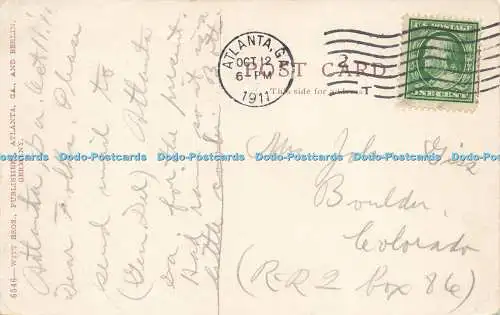 6546—WITT BROS., PUBLISHERS, ATLANTA, GA. AND BERLIN, GERMANY.
Atlanta, Ga. Oct 11, 11
Dear Folks: Please
send mail to
(Gen Del) Atlanta
Ga for the present.
Had
little
ATLANTA, GA.
OCT 12
6 PM
1911
2
POST CARD
This side for address
U.S. POSTAGE
ONE CENT
Mrs. John Giss
Boulder,
Colorado
(R.R.2 box 86)
Dodo-Postcards Dodo-Postcards Dodo-Postcards Dodo-Postcards Dodo-Postcards